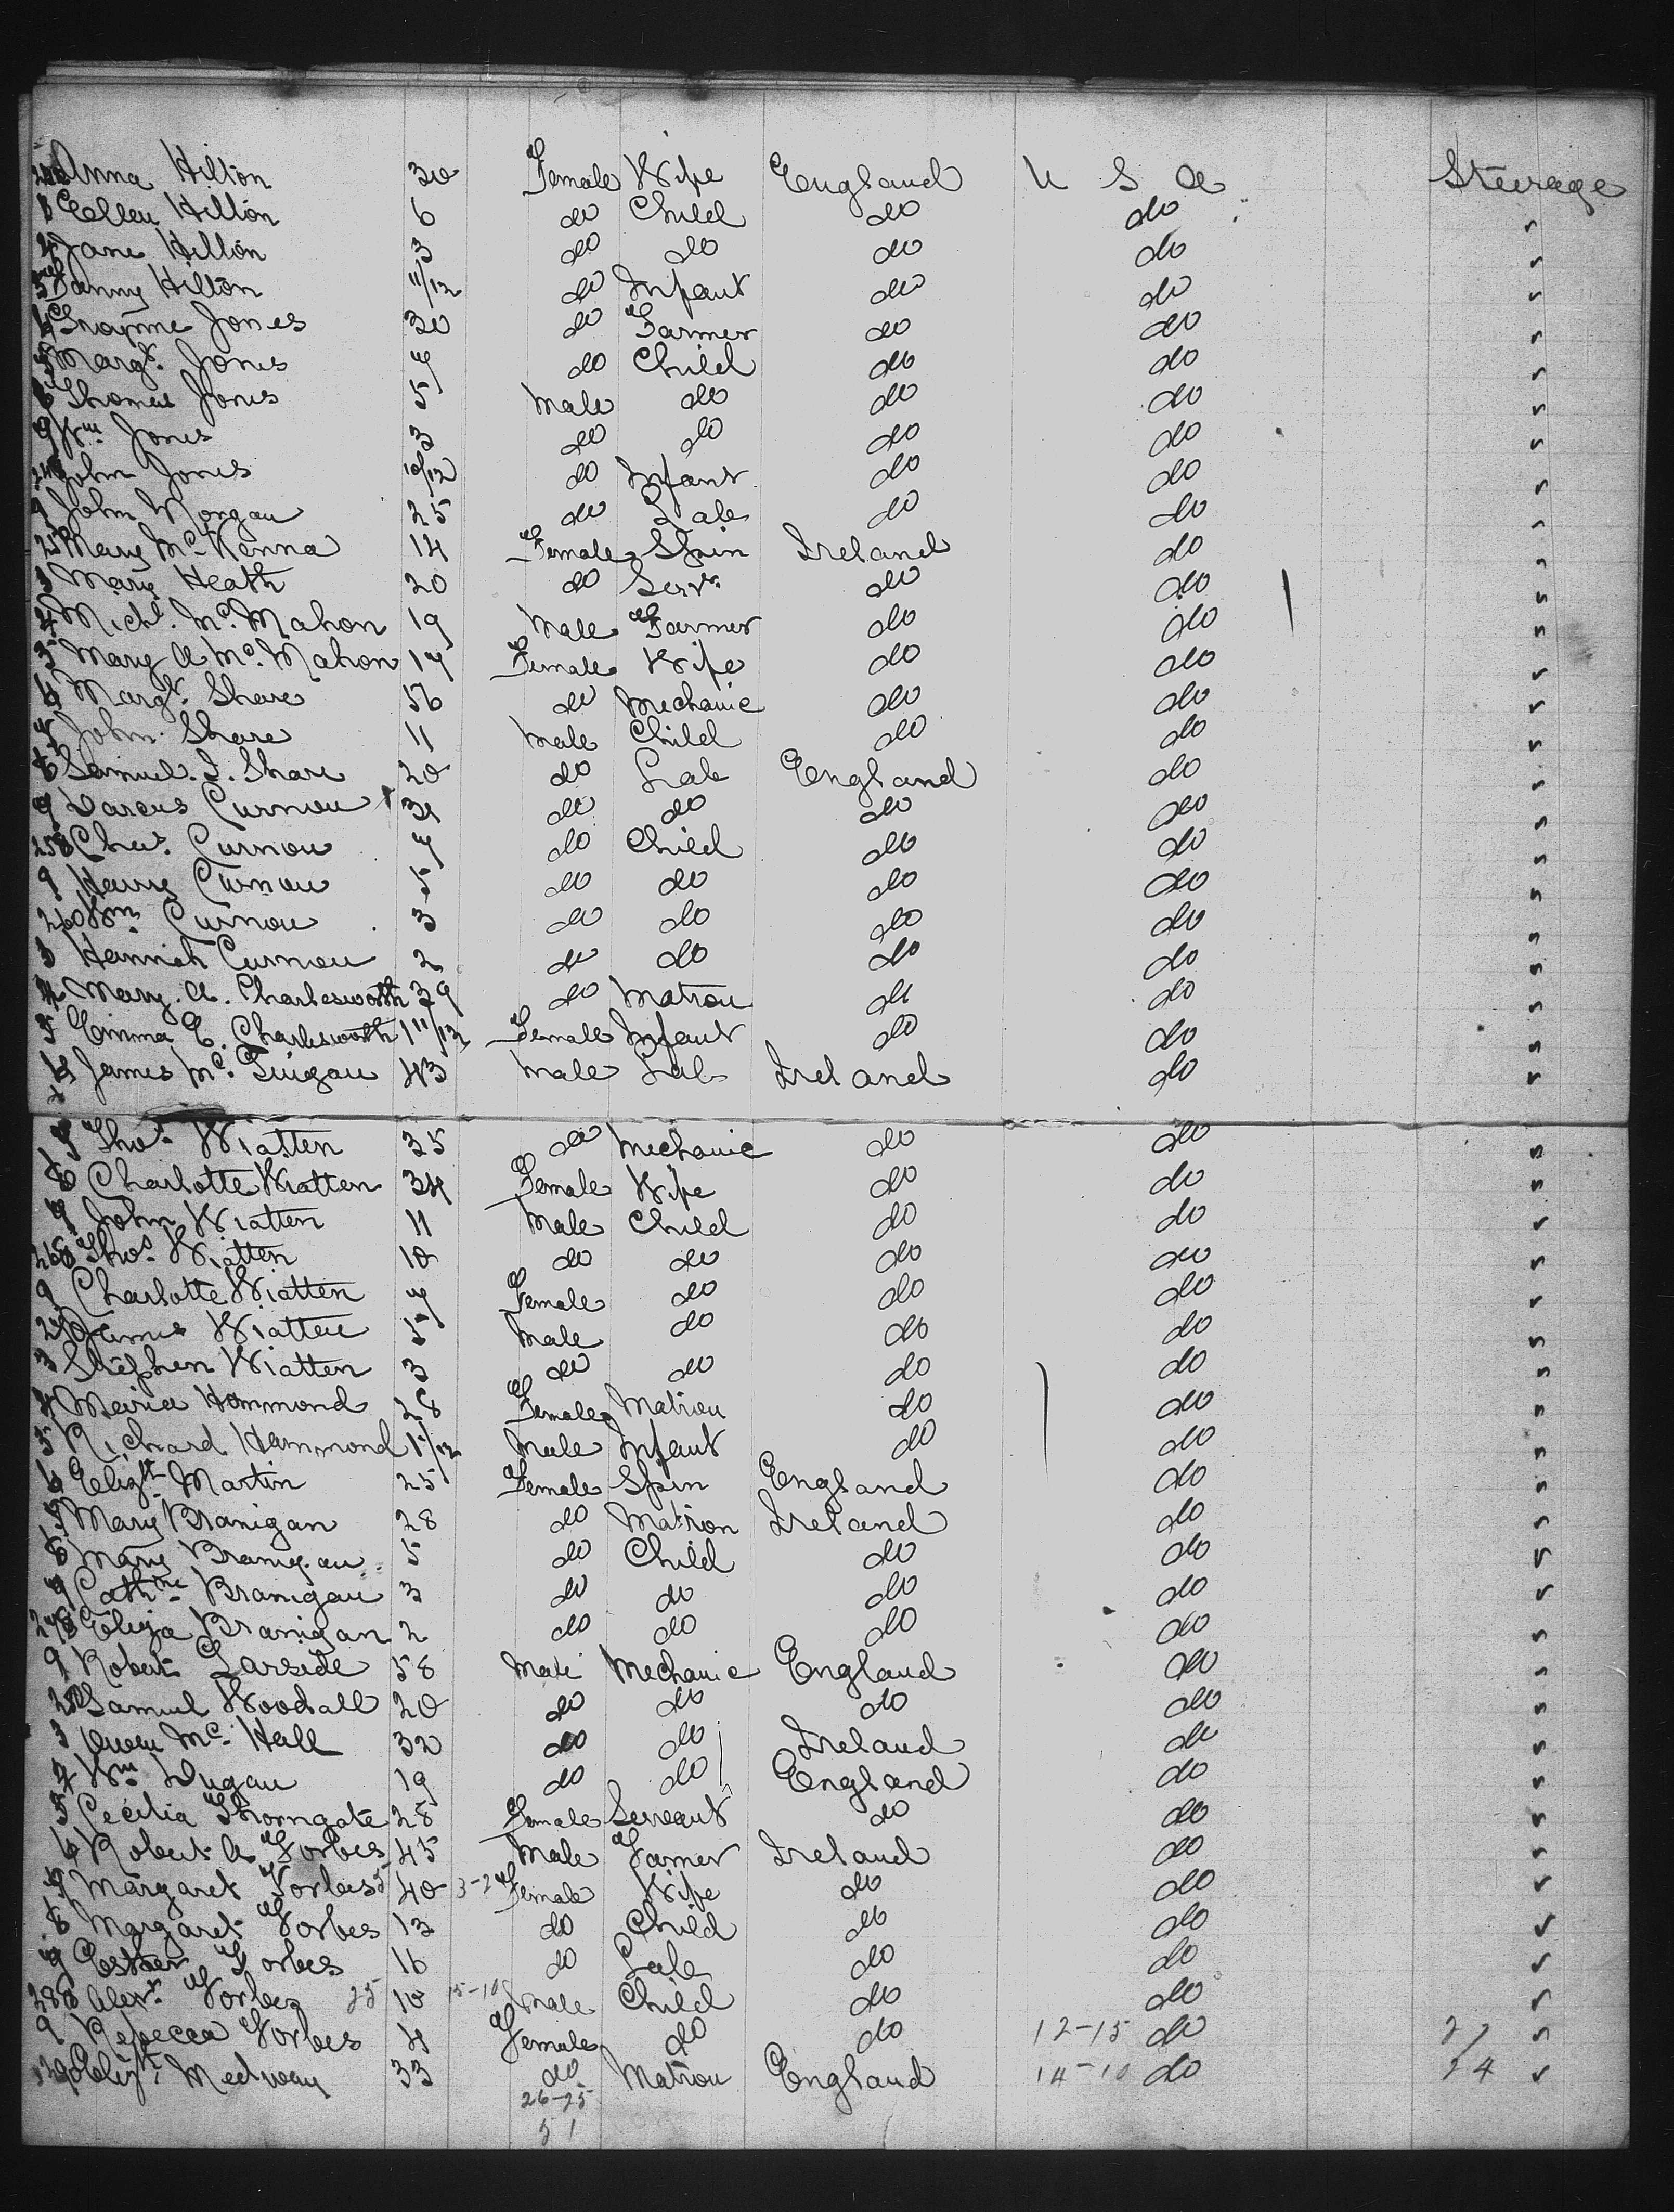 Anna Hilton 30 Female Wife England U S A Steerage
Ellen Hilton 6 do Child do do
4 Jane Hilton 3 do do do do
5 Fanny Hilton 11/12 do Infant do do
Jones 30 do Farmer do do
Margt. Jones 7 do Child do do
Thomas Jones 5 Male do do do
9 Wm. Jones 3 do do do do
John Jones 10/12 do Infant do do
9 John Morgan 25 do Lab do do
Mary Mc Kenna 14 Female Spin Ireland do
3 Mary Heath 20 do Servt. do do
4 Michl. Mc. Mahon 19 Male Farmer do do
5 Mary A Mc. Mahon 17 Female Wife do do
6 Margt. Share 56 do Mechanic do do
7 John Share 11 Male Child do do
8 Samuel. J. Share 20 do Lab England do
9 Darcus Curnou 34 do do do do
258 Chas. Curnou 7 do Child do do
9 Harry Curnou 5 do do do do
260 Wm. Curnou 3 do do do do
3 Hannah Curnou 2 do do do do
4 Mary. A. Charlesworth 39 do Matron do do
5 Emma E. Charlesworth 1 11/12 Female Infant do do
6 James Mc. Guigan 43 Male Lab Ireland do
7 Thos. Wiatten 35 do Mechanic do do
8 Charlotte Wiatten 34 Female Wife do do
9 John Wiatten 11 Male Child do do
268 Thos. Wiatten 10 do do do do
9 Charlotte Wiatten 7 Female do do do
270 James Wiatten 5 Male do do do
3 Stephen Wiatten 3 do do do do
4 Maria Hammond 28 Female Matron do do
5 Richard Hammond 1/12 Male Infant do do
6 Elizth. Martin 25 Female Spin England do
7 Mary Branigan 28 do Matron Ireland do
8 Mary Branigan 5 do Child do do
9 Cathne. Branigan 3 do do do do
278 Eliza Branigan 2 do do do do
9 Robert Garside 58 Male Mechanic England do
280 Samuel Woodall 20 do do do do
3 Owen Mc. Hall 32 do do Ireland do
4 Wm. Dugan 19 do do England do
5 Cecilia Thorngate 28 Female Servant do do
6 Robert A Forbes 45 Male Farmer Ireland do
7 Margaret Forbes 40 3-2 Female Wife do do
8 Margaret Forbes 13 do Child do do
9 Esther Forbes 16 do Lab do do
288 Alexr. Forbes 25 10 15-10 Male Child do do
9 Rebecca Forbes 4 Female do do 12-15 do
290 Elizth. Medway 33 do Matron England 14-10 do 24
26-25
51